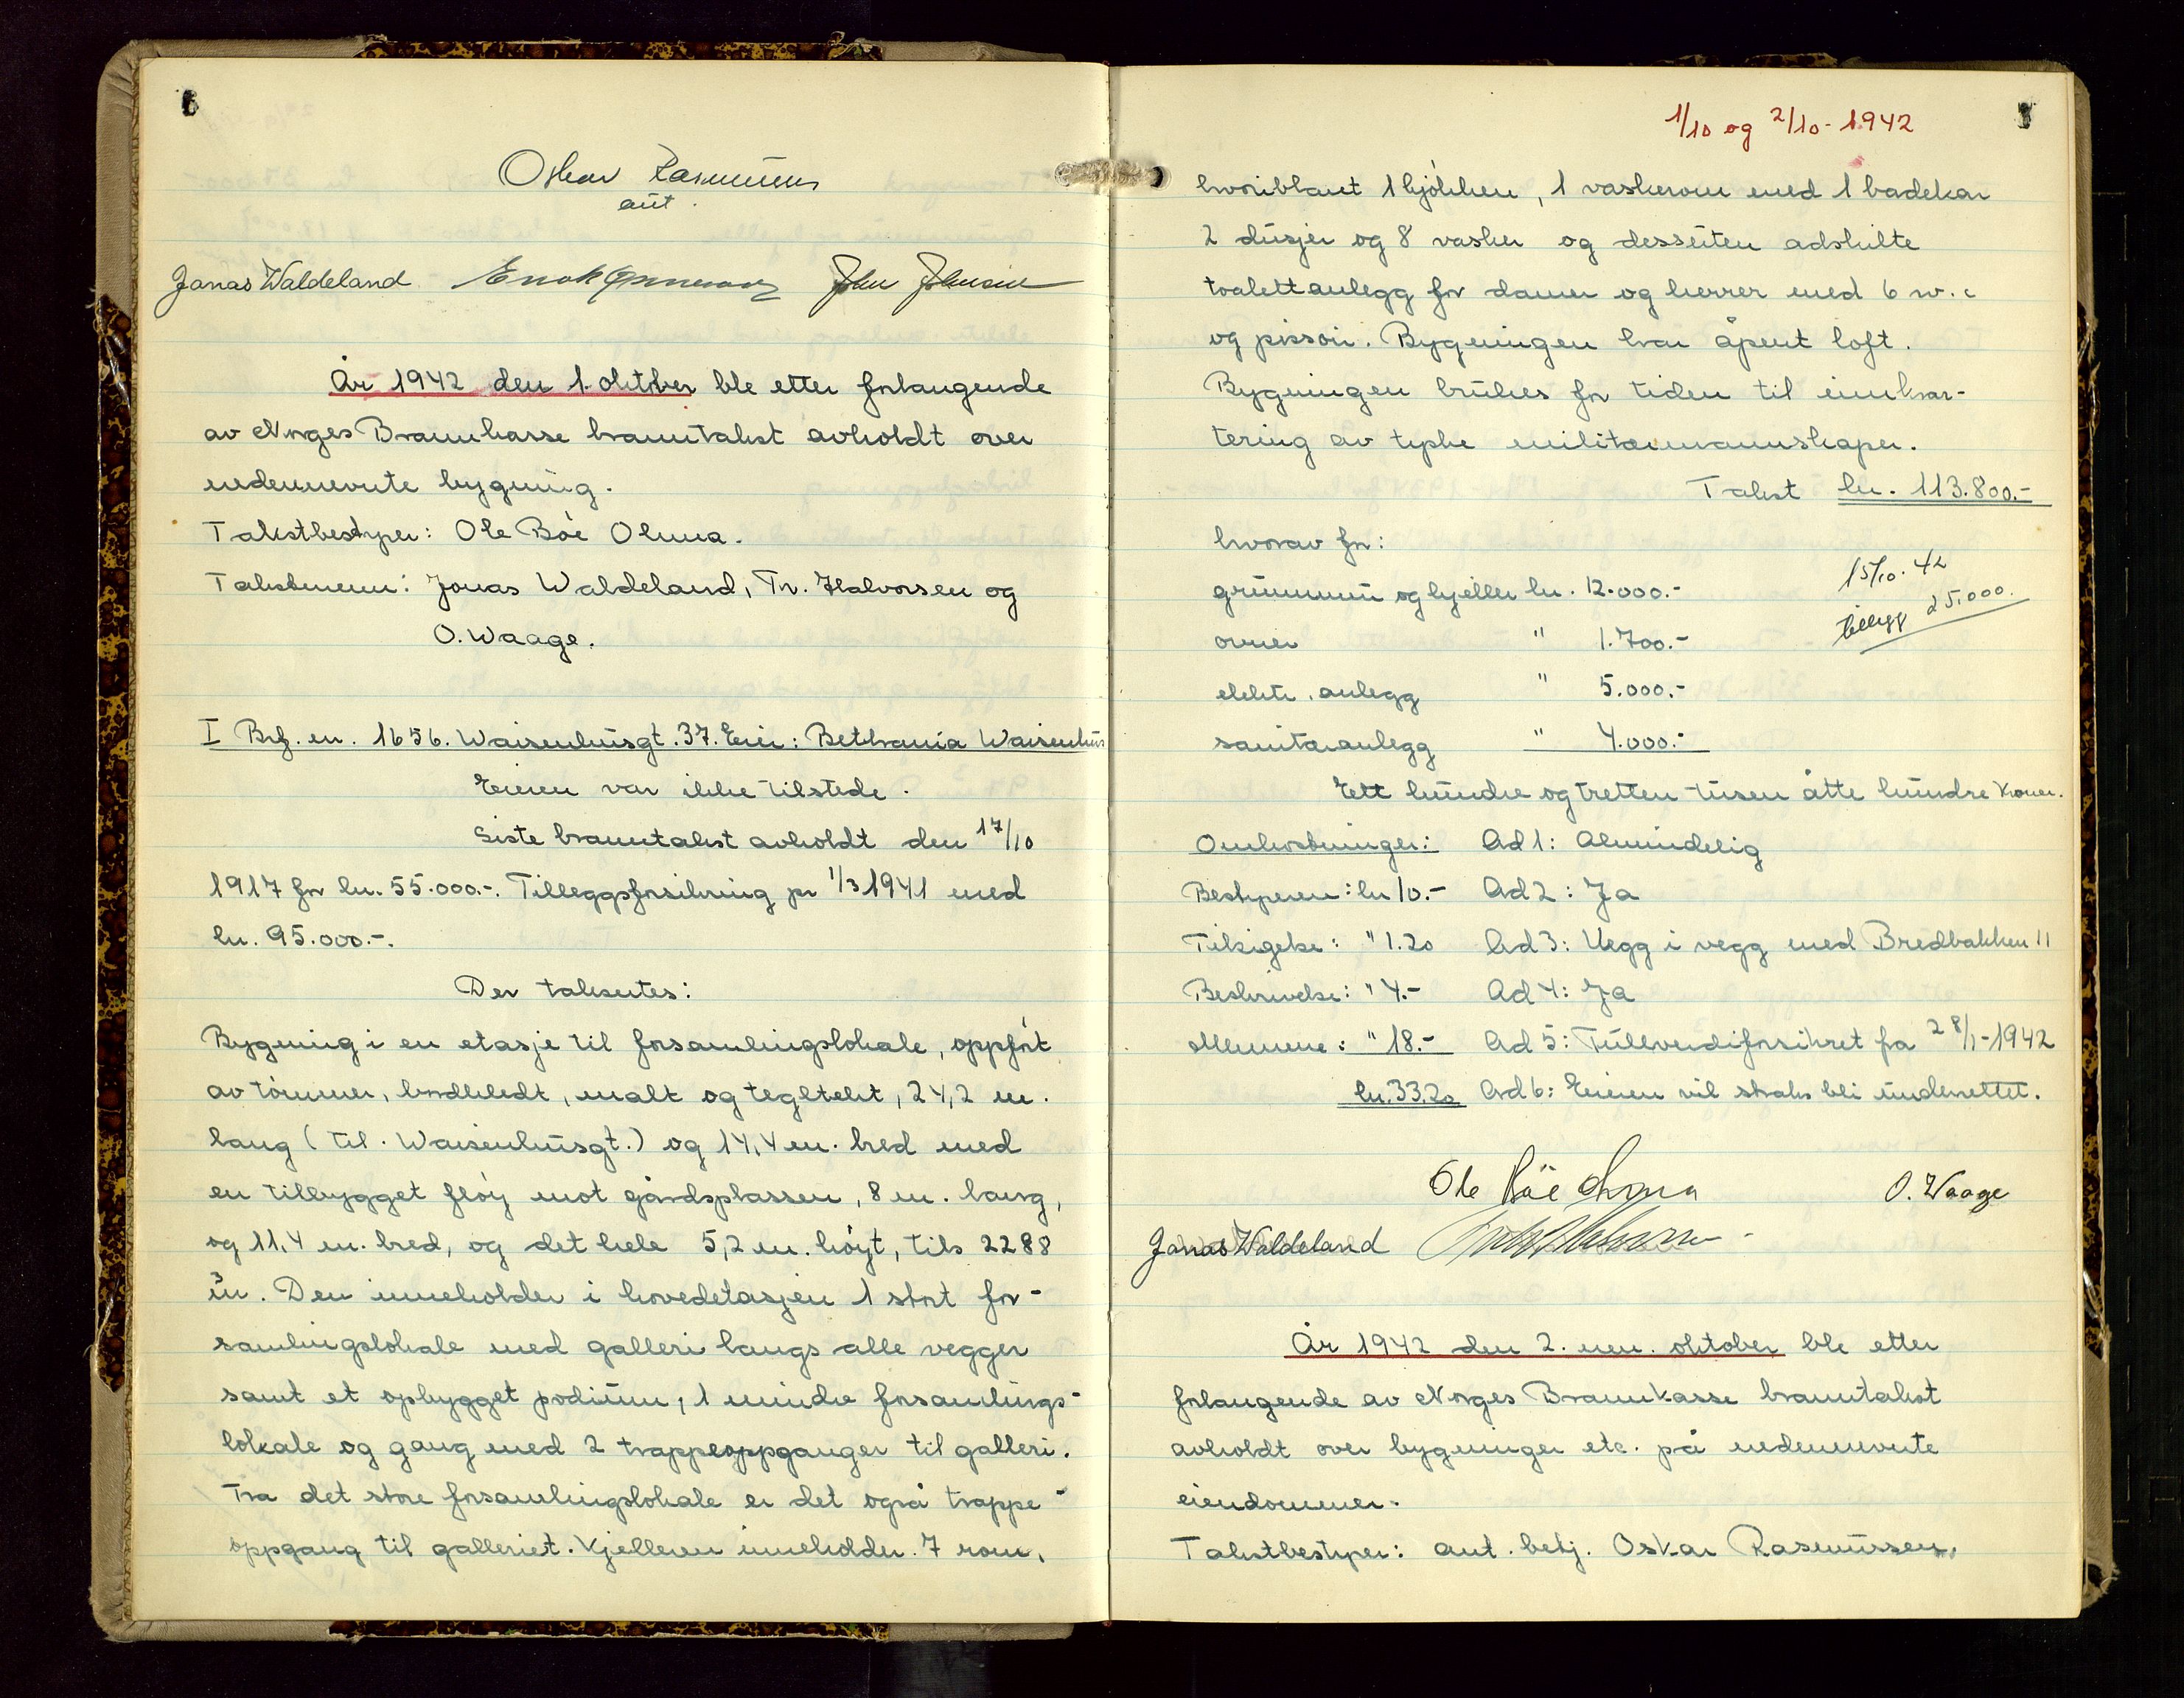 6
Oskar Rasmussen
aut.
Jonas Waldeland John Johnsen
År 1942 den 1. oktober ble etter forlangende
av Norges Brannkasse branntakst avholdt over
nedennevnte bygning.
Takstbestyrer: Ole Böe Olsnea.
Takstmenn: Jonas Waldeland, Tr. Halvorsen og
O. Waage.
I Brf. nr. 1656. Waisenhusgt. 37. Eier: Bethania Waisenhus
Eieren var ikke tilstede.
Siste branntakst avholdt den 17/10
1917 for kr. 55.000.-. Tilleggsforsikring pr 1/3 1941 med
kr. 95.000.-.
Der takseertes:
Bygning i en etasje til forsamlingslokale, oppført
av tömmer, bordkledt, malt og tegltekt, 24,2 m.
lang (til. Waisenhusgt.) og 14,4 m. bred med
en tilbygget flöy mot gårdsplassen, 8 m. lang,
og 11,4 m. bred, og det hele 5,2 m. höyt, tils 2288
m³. Den inneholder i hovedetasjen 1 stort for-
samlingslokale med galleri langs alle vegger
samt et opbygget podium, 1 mindre forsamlings-
lokale og gang med 2 trappeoppganger til galleri.
Fra det store forsamlingslokale er det også trappe-
oppgang til galleriet. Kjelleren inneholder. 7 rom,
1/10 og 2/10 - 1942
7
hvoriblant 1 kjökken, 1 vaskerom med 1 badekar
2 dusjer og 8 vasker og dessuten adskilte
toalettanlegg for damer og herrer med 6 w.c
og pissoir. Bygningen har åpent loft.
Bygningen brukes for tiden til innkvar-
tering av tyske militærmannskaper.
Takst kr. 113.800.-
hvorav for:
grunnmur og kjeller kr. 12.000.-
ovner " 1.700.-
elektr. anlegg " 5.000.-
sanitæranlegg " 4.000.-
15/10. 42
tillegg 25.000.
Ett hundre og tretten tusen åtte hundre kroner.
Omkostninger: Ad 1: Almindelig
Bestyreren: kr 10.- Ad 2: Ja
Tilsigelse: " 1.20 Ad 3: Vegg i vegg med Bredbakken 11
Beskrivelse: " 4.- Ad 4: Ja
Mennene: " 18.- Ad 5: Fullverdiforsikret fra 28/1-1942
kr. 33.20 Ad 6: Eieren vil straks bli underrettet.
Ole Böe O. Waage
Jonas Waldeland
År 1942 den 2. nen. oktober ble etter
forlangende av Norges Brannkasse branntakst
avholdt over bygninger etc. på nedennevnte
eiendommer.
Takstbestyrer: aut. betj. Oskar Rasmussen.